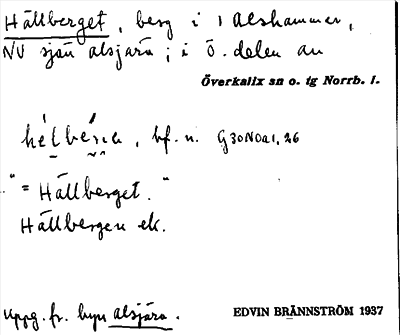 Hällberget, berg i 1 alshammer,
NV sjön alsjärv; i Ö. delen av
Överkalix sn o. tg Norrb. l.
hélbéṛɩɛ, bf. n. G30N0a1,26
"= Hällberget."
Hällbergen ek.
uppg. fr. byn alsjärv.
EDVIN BRÄNNSTRÖM 1937